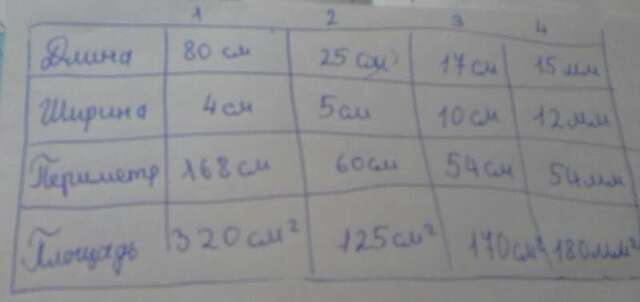 1 2 3 4
Длина 80 см 25 см 17 см 15 мм
Ширина 4 см 5 см 10 см 12 мм
Периметр 168 см 60 см 54 см 54 мм
Площадь 320 см² 125 см² 170 см² 180 мм²